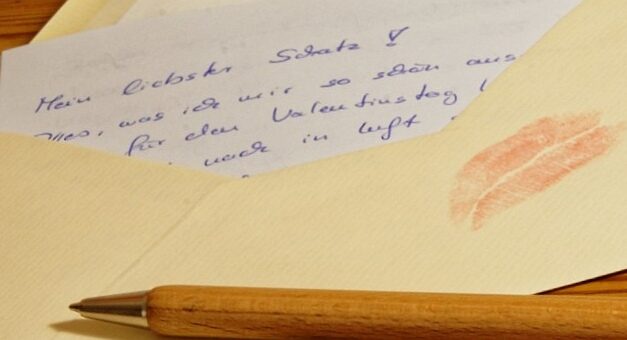 Mein liebster Schatz!
Alles, was ich mir so schön aus
für den Valentinstag
noch in Luft